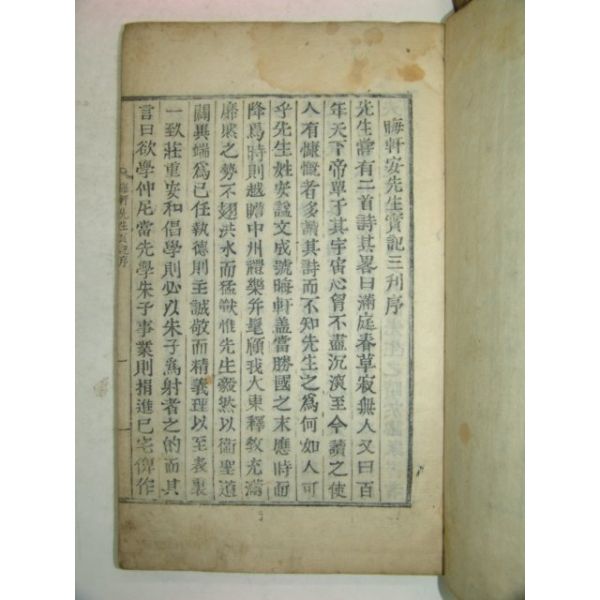 晦軒安先生實記三刊序
先生嘗有二首詩其畧曰滿庭春草寂無人又曰百
年天下帝單于其宇宙心胷不盡沉淡至今讀之使
人有慷慨者多誦其詩而不知先生之為何如人可
乎先生姓安諡文成號晦軒盖當勝國之末應時而
降為時則越瞻中州禮樂弁髦顧我大東釋敎充滿
靡㳽之勢不翅洪水而猛獸惟先生毅然以衛聖道
闢異端為已任執德則主誠敬而精義理以至表裏
一致莊重安和倡學則必以朱子為射者之的而其
言曰欲學仲尼當先學朱子事業則捐進已宅俾作
晦軒先生實記序